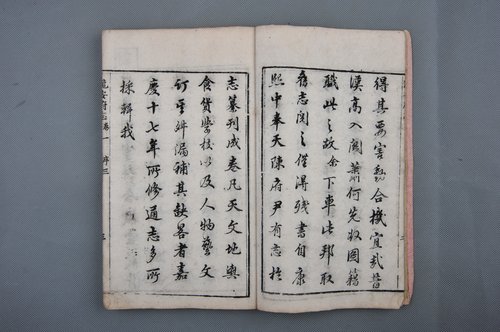 得其要害動合機宜哉昔
漢高入關蕭何先收圖籍
職此之故余下車此邦取
舊志閱之僅得殘書自康
熙中奉天陳府尹有志於
志纂刊成卷凡天文地輿
食貨學校以及人物藝文
訂其舛漏補其缺畧者嘉
慶十七年所修通志多所
採輯我
龍安府志 卷一 序三